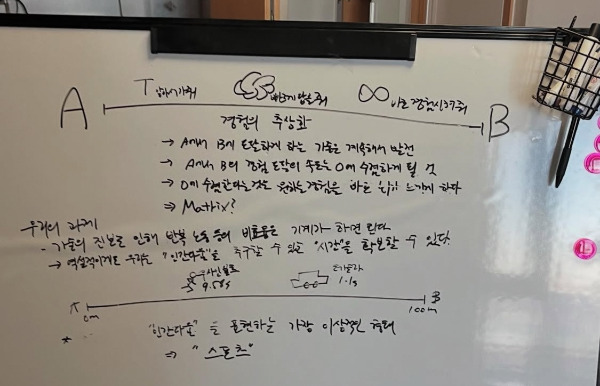 A T 빠르게 답을 줘 ∞ 바로 경험시켜줘 B
경험의 추상화
→ A에서 B에 도달하게 하는 기술은 계속해서 발전
→ A에서 B의 경험 도달의 속도는 0에 수렴하게 될 것
→ 0에 수렴한다는 것은 원하는 경험을 바로 느끼게 하다
→ Matrix?
우리의 과제
- 기술의 진보로 인해 반복 노동 등의 비효율은 기계가 하면 된다
→ 역설적이게도 우리는 "인간다움"을 추구할 수 있는 "시간"을 확보할 수 있다.
우사인볼트
9.58s 1.1s
A B
0m 100m
* "인간다움"을 표현하는 가장 이상적인 형태
⇒ "스포츠"